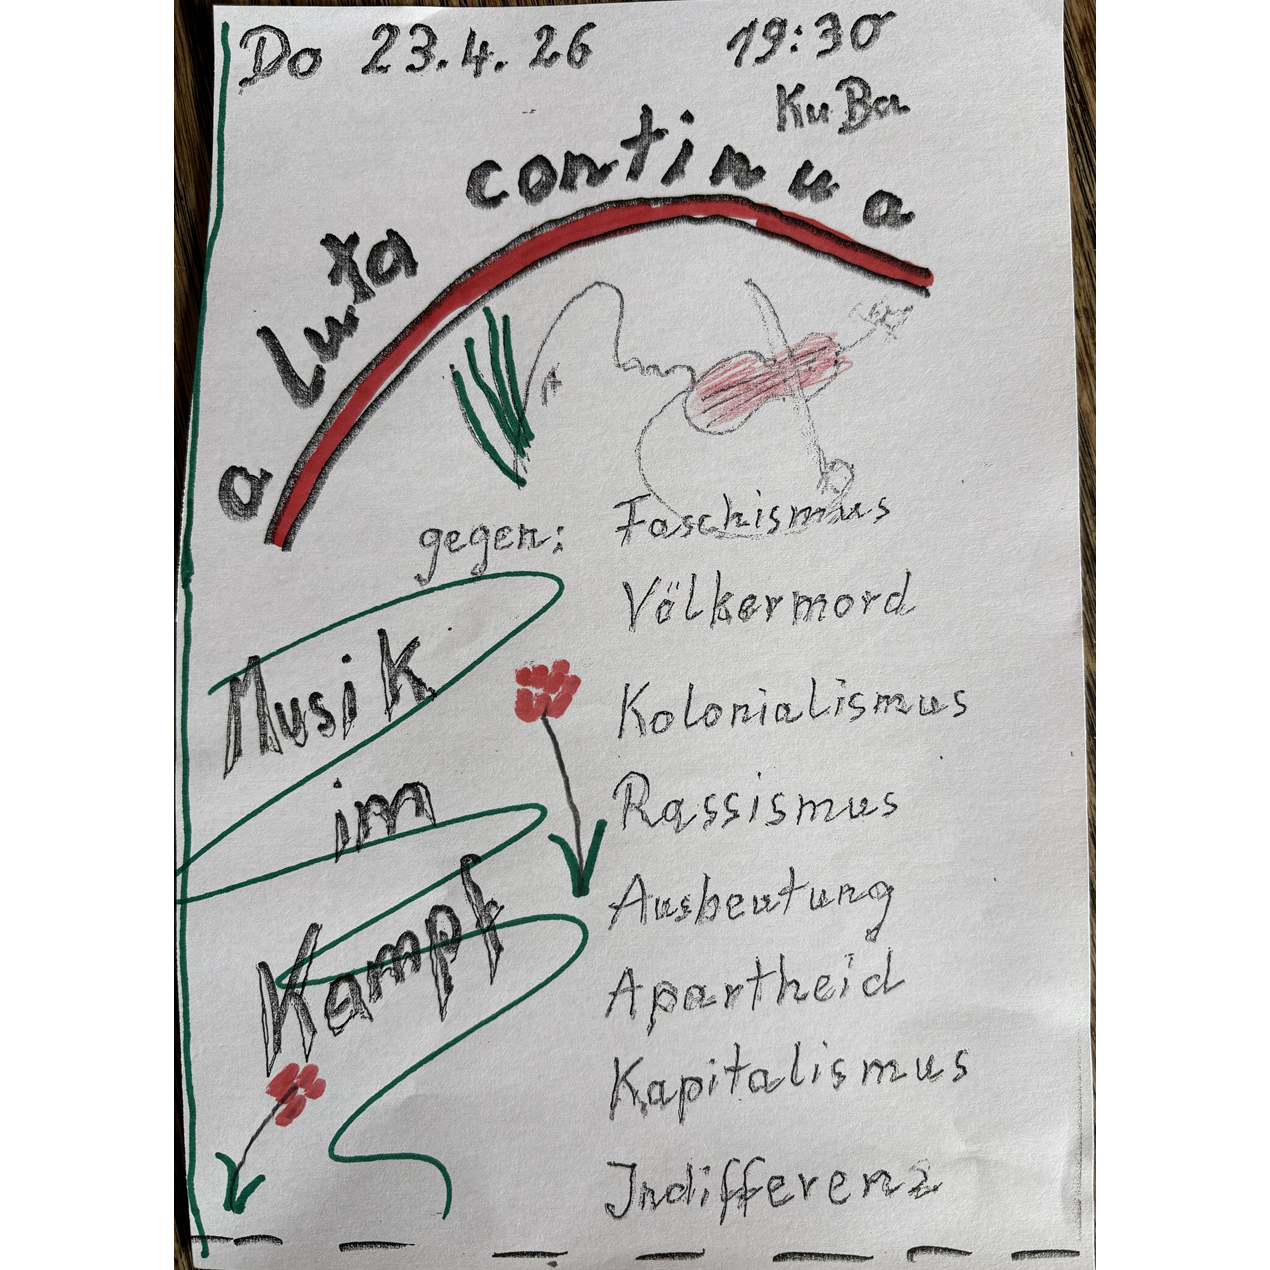 Do 23.4.26 19:30
KuBa
a Luxa continua
gegen: Faschismus
Völkermord
Kolonialismus
Rassismus
Ausbeutung
Apartheid
Kapitalismus
Indifferenz
Musik
im
Kampf